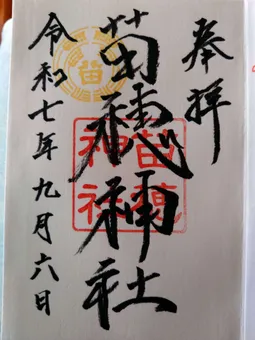 奉拝
苗穂神社
令和七年九月六日
苗
苗穂
神社